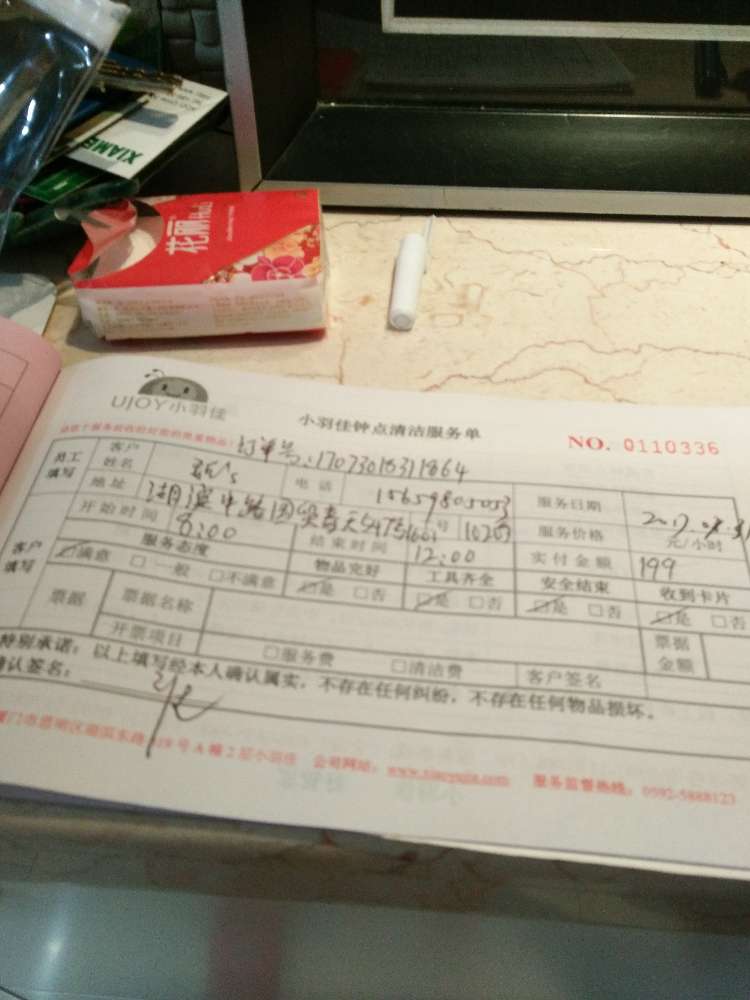 XIAME
花丽Hali
UJOY小羽佳
小羽佳钟点清洁服务单
NO. 0110336
订单号:17073015311864
员工填写 客户姓名 电话 15659805053 服务日期
地址 湖滨中路 号 服务价格 元/小时
客户填写 开始时间 8:00 结束时间 12:00 实付金额 199
服务态度 物品完好 工具齐全 安全结束 收到卡片
☑满意 □一般 □不满意 ☑是 □否 ☑是 □否 ☑是 □否 ☑是 □否
票据 票据名称 票据金额
开票项目 □服务费 □清洁费 客户签名
特别承诺:以上填写经本人确认属实,不存在任何纠纷,不存在任何物品损坏。
确认签名:
厦门市思明区湖滨东路 号A幢2层小羽佳 公司网站: 服务监督热线:0592-5888123